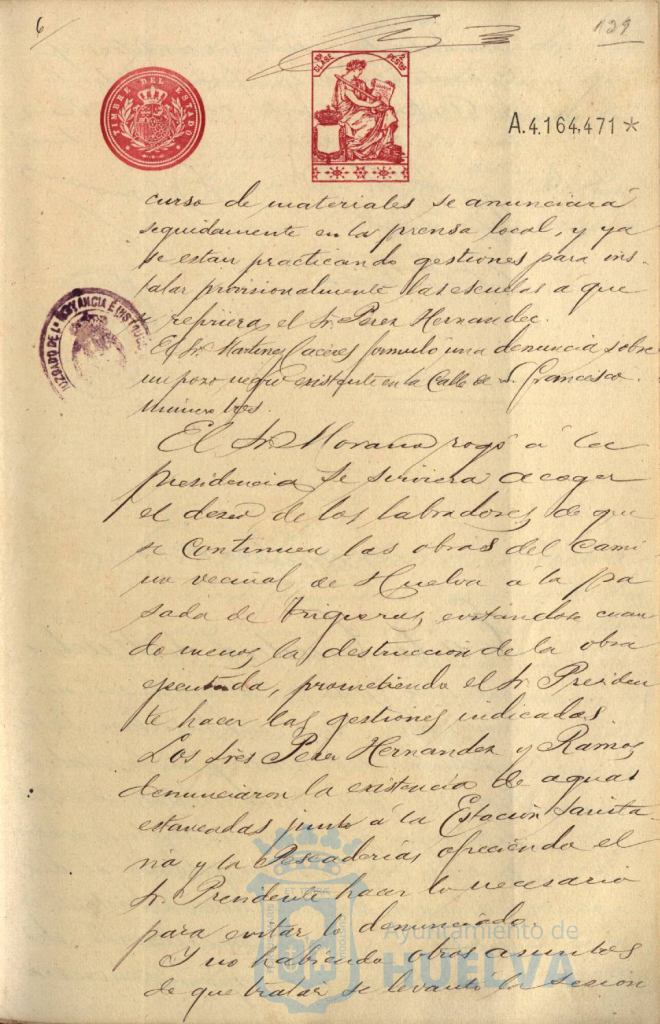 6
129
TIMBRE DEL ESTADO
CLASE
2 PESETAS
A.4.164.471*
curso de materiales se anunciará
seguidamente en la prensa local, y ya
se estan practicando gestiones para ins-
talar provisionalmente las escuelas á que
se refiriera el Sr. Perez Hernandez.
JUZGADO DE 1ª INSTANCIA É INSTRUCCIÓN
El Sr. Martinez Caceres formuló una denuncia sobre
un pozo negro existente en la Calle de S. Francisco
número tres.
El Sr. Morano rogó á la
presidencia se sirviera acoger
el deseo de los labradores de que
se continuen las obras del cami
no vecinal de Huelva á la pa
sada de Trigueros, evitandose cuan
do menos la destruccion de la obra
ejecutada, prometiendo el Sr. Presiden
te hacer las gestiones indicadas.
Los Sres Perez Hernandez y Ramos
denunciaron la existencia de aguas
estancadas junto á la Estación Sanita-
ria y la Pescadería, ofreciendo el
Sr. Presidente hacer lo necesario
para evitar lo denunciado.
Y no habiendo otros asuntos
de que tratar se levantó la sesión
Ayuntamiento de
HUELVA